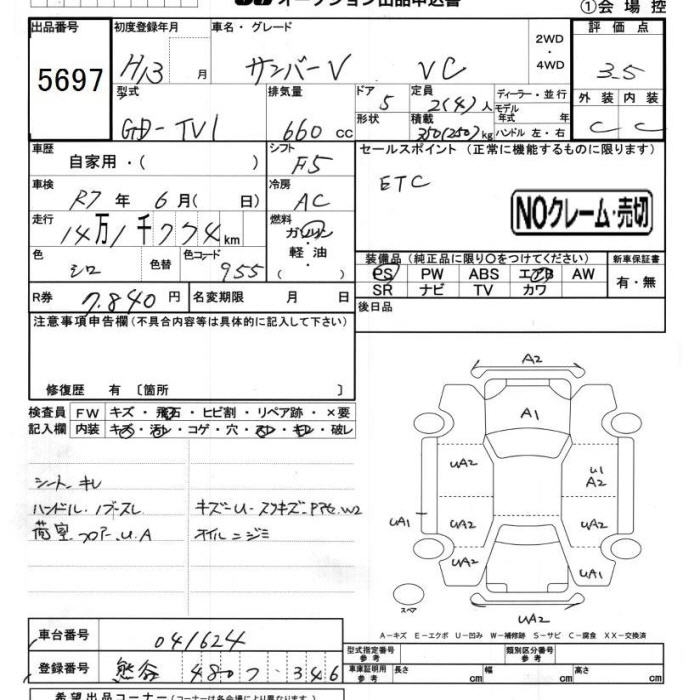 オークション出品申込書
①会場控
出品番号
5697
初度登録年月
H13 月
車名・グレード
サンバーV VC
2WD
・
4WD
評価点
3.5
外装 内装
C C
型式
GD-TV1
排気量
660 cc
ドア
5
形状
定員
2(4)人
積載
350(250)kg
ディーラー・並行
モデル
年式 年
ハンドル 左・右
車歴
自家用・( )
シフト
F5
車検
R7年 6月( 日)
冷房
AC
走行
14万1千774km
燃料
ガソリン
・
軽油
( )
色
シロ
色替
色コード
955
R券 7,840円
名変期限 月 日
セールスポイント (正常に機能するものに限ります)
ETC
NOクレーム・売切
装備品 (純正品に限り○をつけてください)
PS PW ABS エアB AW
SR ナビ TV カワ
新車保証書
有・無
後日品
注意事項申告欄(不具合内容等は具体的に記入して下さい)
修復歴 有 〔箇所 〕
検査員 FW キズ・飛石・ヒビ割・リペア跡・×要
記入欄 内装 キズ・汚レ・コゲ・穴・スレ・キレ・破レ
シート、キレ
ハンドル・ノブスレ キズ-U・スリキズ・P他、W2
荷室フロアー、U.A オイルニジミ
A2
A1
UA2
U1
A2
UA1
UA2
UA2
UA2
UA1
スペア
UA2
A-キズ E-エクボ U-凹み W-補修跡 S-サビ C-腐食 XX-交換済
車台番号
041624
登録番号
熊谷 480 ワ ・346
型式指定番号
参考
類別区分番号
参考
車庫証明用
参考
長さ cm 幅 cm 高さ cm
希望出品コーナー(コーナーは各会場により異なります)